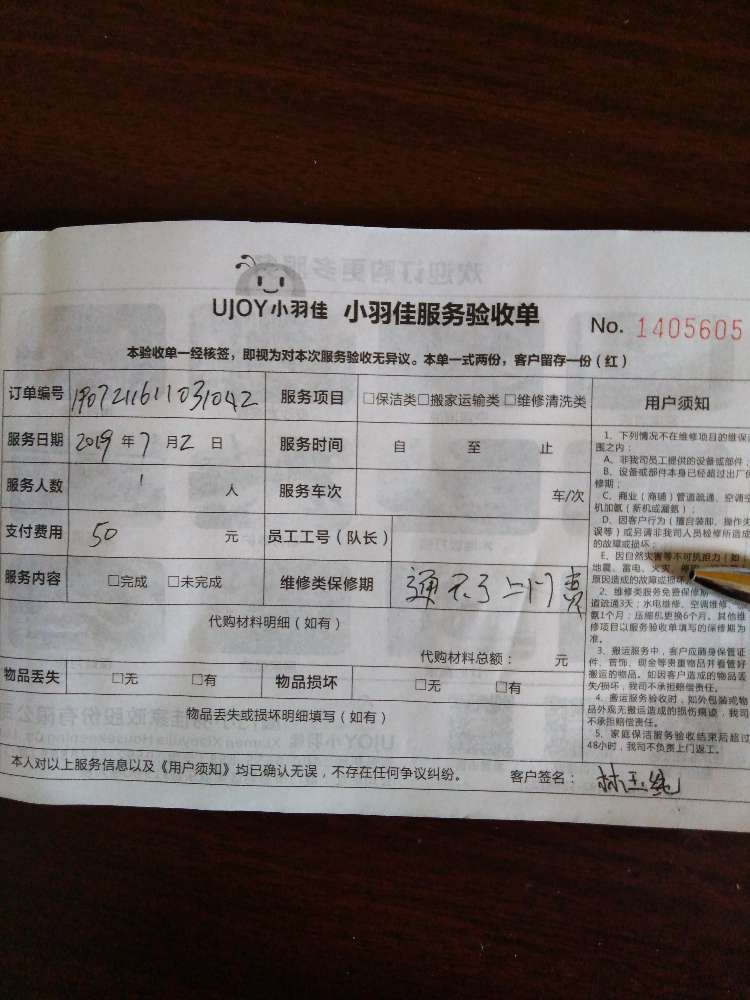 UJOY小羽佳 小羽佳服务验收单 No. 1405605
本验收单一经核签，即视为对本次服务验收无异议。本单一式两份，客户留存一份（红）
订单编号 1907211611031042 服务项目 □保洁类□搬家运输类 □维修清洗类
服务日期 2019 年 7 月 2 日 服务时间 自 至 止
服务人数 1 人 服务车次 车/次
支付费用 50 元 员工工号（队长）
服务内容 □完成 □未完成 维修类保修期 通不了上门费
代购材料明细（如有）
代购材料总额： 元
物品丢失 □无 □有 物品损坏 □无 □有
物品丢失或损坏明细填写（如有）
本人对以上服务信息以及《用户须知》均已确认无误，不存在任何争议纠纷。 客户签名：
用户须知
1、下列情况不在维修项目的维保
围之内：
A、非我司员工提供的设备或部件；
B、设备或部件本身已经超过出厂
修期；
C、商业（商铺）管道疏通、空调
机加氨（新机或漏氨）；
D、因客户行为（擅自装卸、操作
误等）或另请非我司人员检修所造成
的故障或损坏；
E、因自然灾害等不可抗拒力（如
地震、雷电、火灾、
原因造成的故障或损坏
2、维修类服务免费保修期
道疏通3天；水电维修、空调维修、
氨1个月；压缩机更换6个月。其他维
修项目以服务验收单填写的保修期为
准。
3、搬运服务中，客户应随身保管证
件、首饰、现金等贵重物品并看管好
搬运的物品。如因客户造成的物品丢
失/损坏，我司不承担赔偿责任。
4、搬运服务验收时，如外包装或物
品外观无搬运造成的损伤痕迹，我司
不承担赔偿责任。
5、家庭保洁服务验收结束后超过
48小时，我司不负责上门返工。